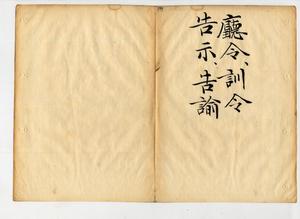 廳令、訓令
告示、告諭